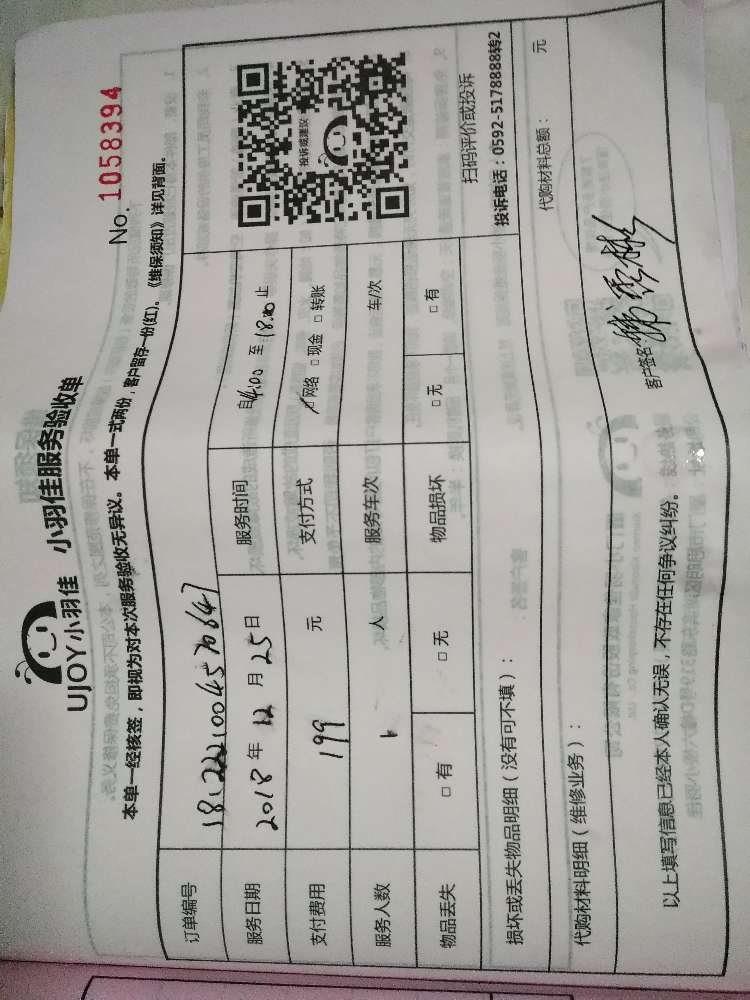 UJOY小羽佳 小羽佳服务验收单
No. 1058394
本单一经核签，即视为对本次服务验收无异议。本单一式两份，客户留存一份(红)。《维保须知》详见背面。
订单编号 181222100457064
服务日期 2018 年 12 月 25 日 服务时间 自14:00 至 18:00 止
支付费用 199 元 支付方式 ☑网络 □现金 □转账
服务人数 1 人 服务车次 车/次
物品丢失 □有 □无 物品损坏 □无 □有
投诉或建议
扫码评价或投诉
投诉电话：0592-5178888转2
损坏或丢失物品明细（没有可不填）：
代购材料明细（维修业务）： 代购材料总额： 元
以上填写信息已经本人确认无误，不存在任何争议纠纷。 客户签名